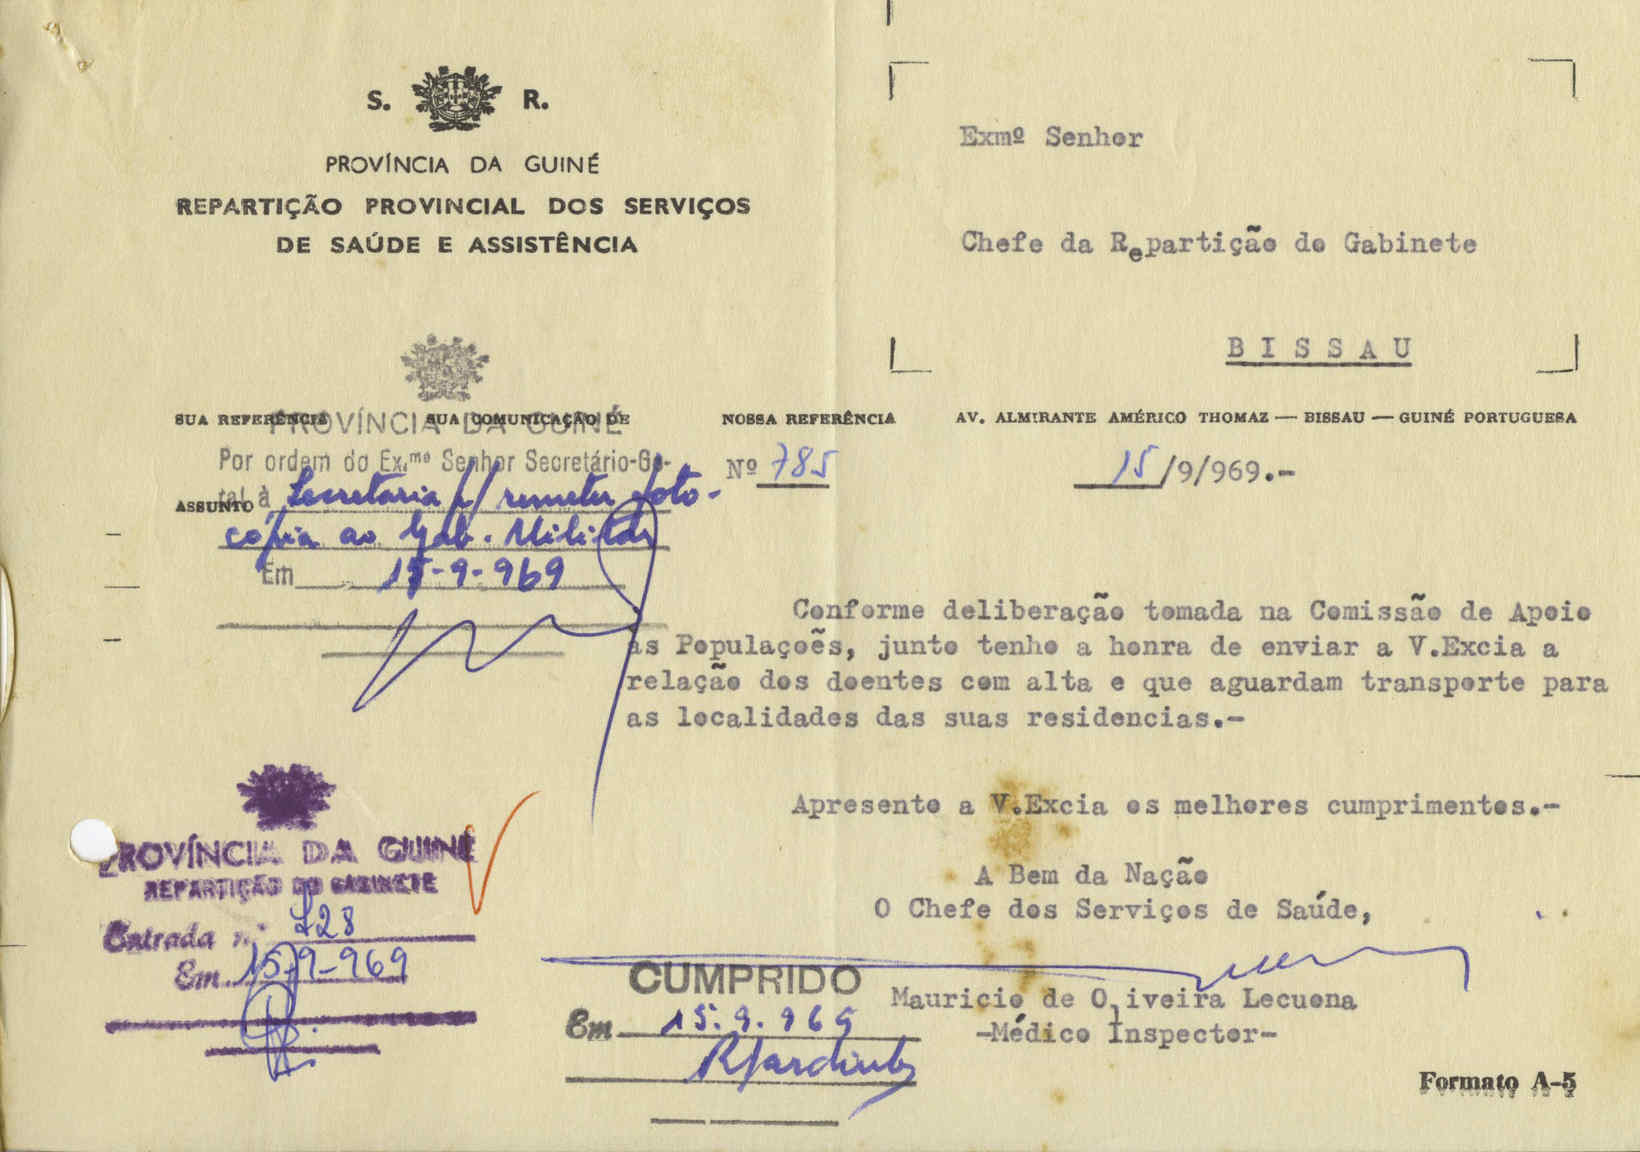 S. R.
PROVÍNCIA DA GUINÉ
REPARTIÇÃO PROVINCIAL DOS SERVIÇOS
DE SAÚDE E ASSISTÊNCIA
Exmº Senhor
Chefe da Repartição do Gabinete
B I S S A U
SUA REFERÊNCIA SUA COMUNICAÇÃO DE NOSSA REFERÊNCIA AV. ALMIRANTE AMÉRICO THOMAZ — BISSAU — GUINÉ PORTUGUESA
Nº 785 15/9/969.-
ASSUNTO
PROVÍNCIA DA GUINÉ
Por ordem do Ex.mo Senhor Secretário-Ge-
ral à Secretaria p/ remeter foto-
cópia ao Gab. Militar
Em 15-9-969
Conforme deliberação tomada na Comissão de Apoio
às Populaçoẽs, junto tenho a honra de enviar a V.Excia a
relação dos doentes com alta e que aguardam transporte para
as localidades das suas residencias.-
Apresento a V.Excia os melhores cumprimentos.-
A Bem da Nação
O Chefe dos Serviços de Saúde,
Mauricio de Oliveira Lecuona
-Médico Inspector-
PROVÍNCIA DA GUINÉ
REPARTIÇÃO DO GABINETE
Entrada n.º 728
Em 15-9-969
CUMPRIDO
Em 15.9.969
Formato A-5